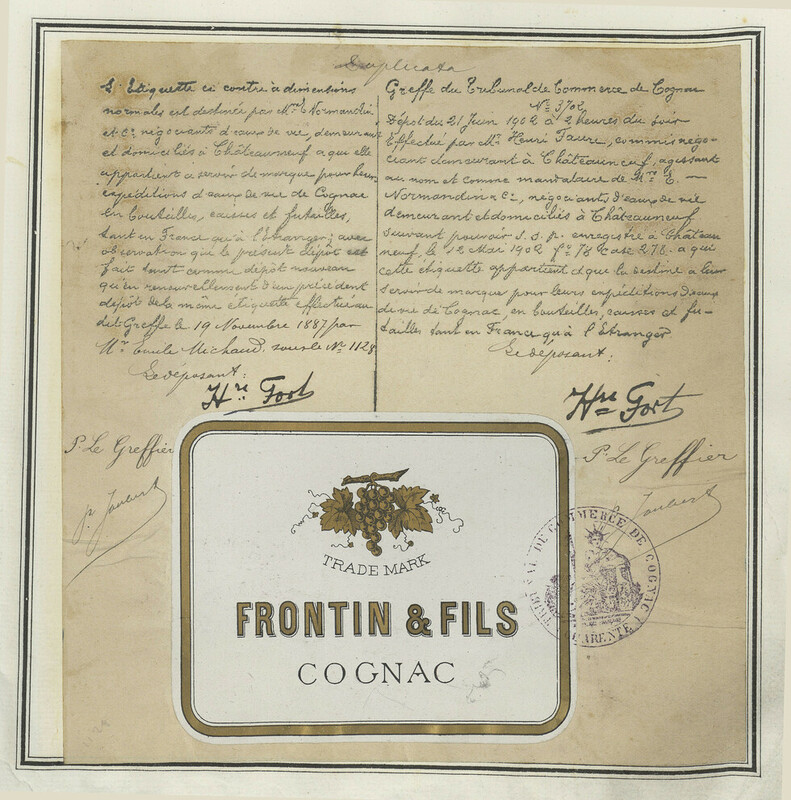 Duplicata
L'Etiquette ci contre à dimensions
normales est destinée par Mrs E Normandin
et Cie négociants d'eaux de vie, demeurant
et domiciliés à Châteauneuf a qui elle
appartient a servir de marque pour leurs
expéditions d'eaux de vie de Cognac
en bouteilles, caisses et futailles,
tant en France qu'à l'Etranger; avec
observation que le présent dépôt est
fait tant comme dépôt nouveau
qu'en renouvellement d'un précédent
dépôt de la même etiquette effectué au
dit Greffe le 19 Novembre 1887 par
Mr Emile Michaud, sous le No 1128
Le déposant:
Hre Fort
P. Le Greffier
Greffe du Tribunal de Commerce de Cognac
No 3702
Dépôt du 21 Juin 1902 à 2 heures du soir
Effectué par Mr Henri Faure, commis négo-
ciant demeurant à Châteauneuf, agissant
au nom et comme mandataire de Mrs E.
Normandin & Cie, négociants d'eaux de vie
demeurant et domiciliés à Châteauneuf
suivant pouvoir s.s.p. enregistré à Château
neuf, le 12 Mai 1902 fo 78 case 278. a qui
cette étiquette appartient et que la destine à leur
servir de marque pour leurs expéditions d'eaux
de vie de Cognac, en bouteilles, caisses et fu-
tailles tant en France qu'à l'Etranger
Le déposant:
Hre Fort
P. Le Greffier
TRADE MARK
FRONTIN & FILS
COGNAC
TRIBUNAL DE COMMERCE DE COGNAC
CHARENTE